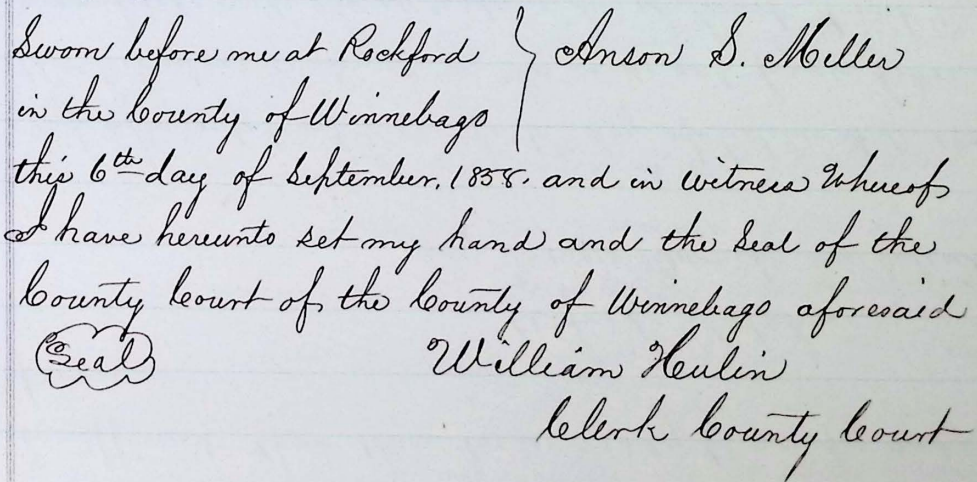 Sworn before me at Rockford } Anson S. Miller
in the County of Winnebago
this 6th day of September, 1858. and in witness Whereof
I have hereunto set my hand and the Seal of the
County Court of the County of Winnebago aforesaid
Seal William Hulin
Clerk County Court